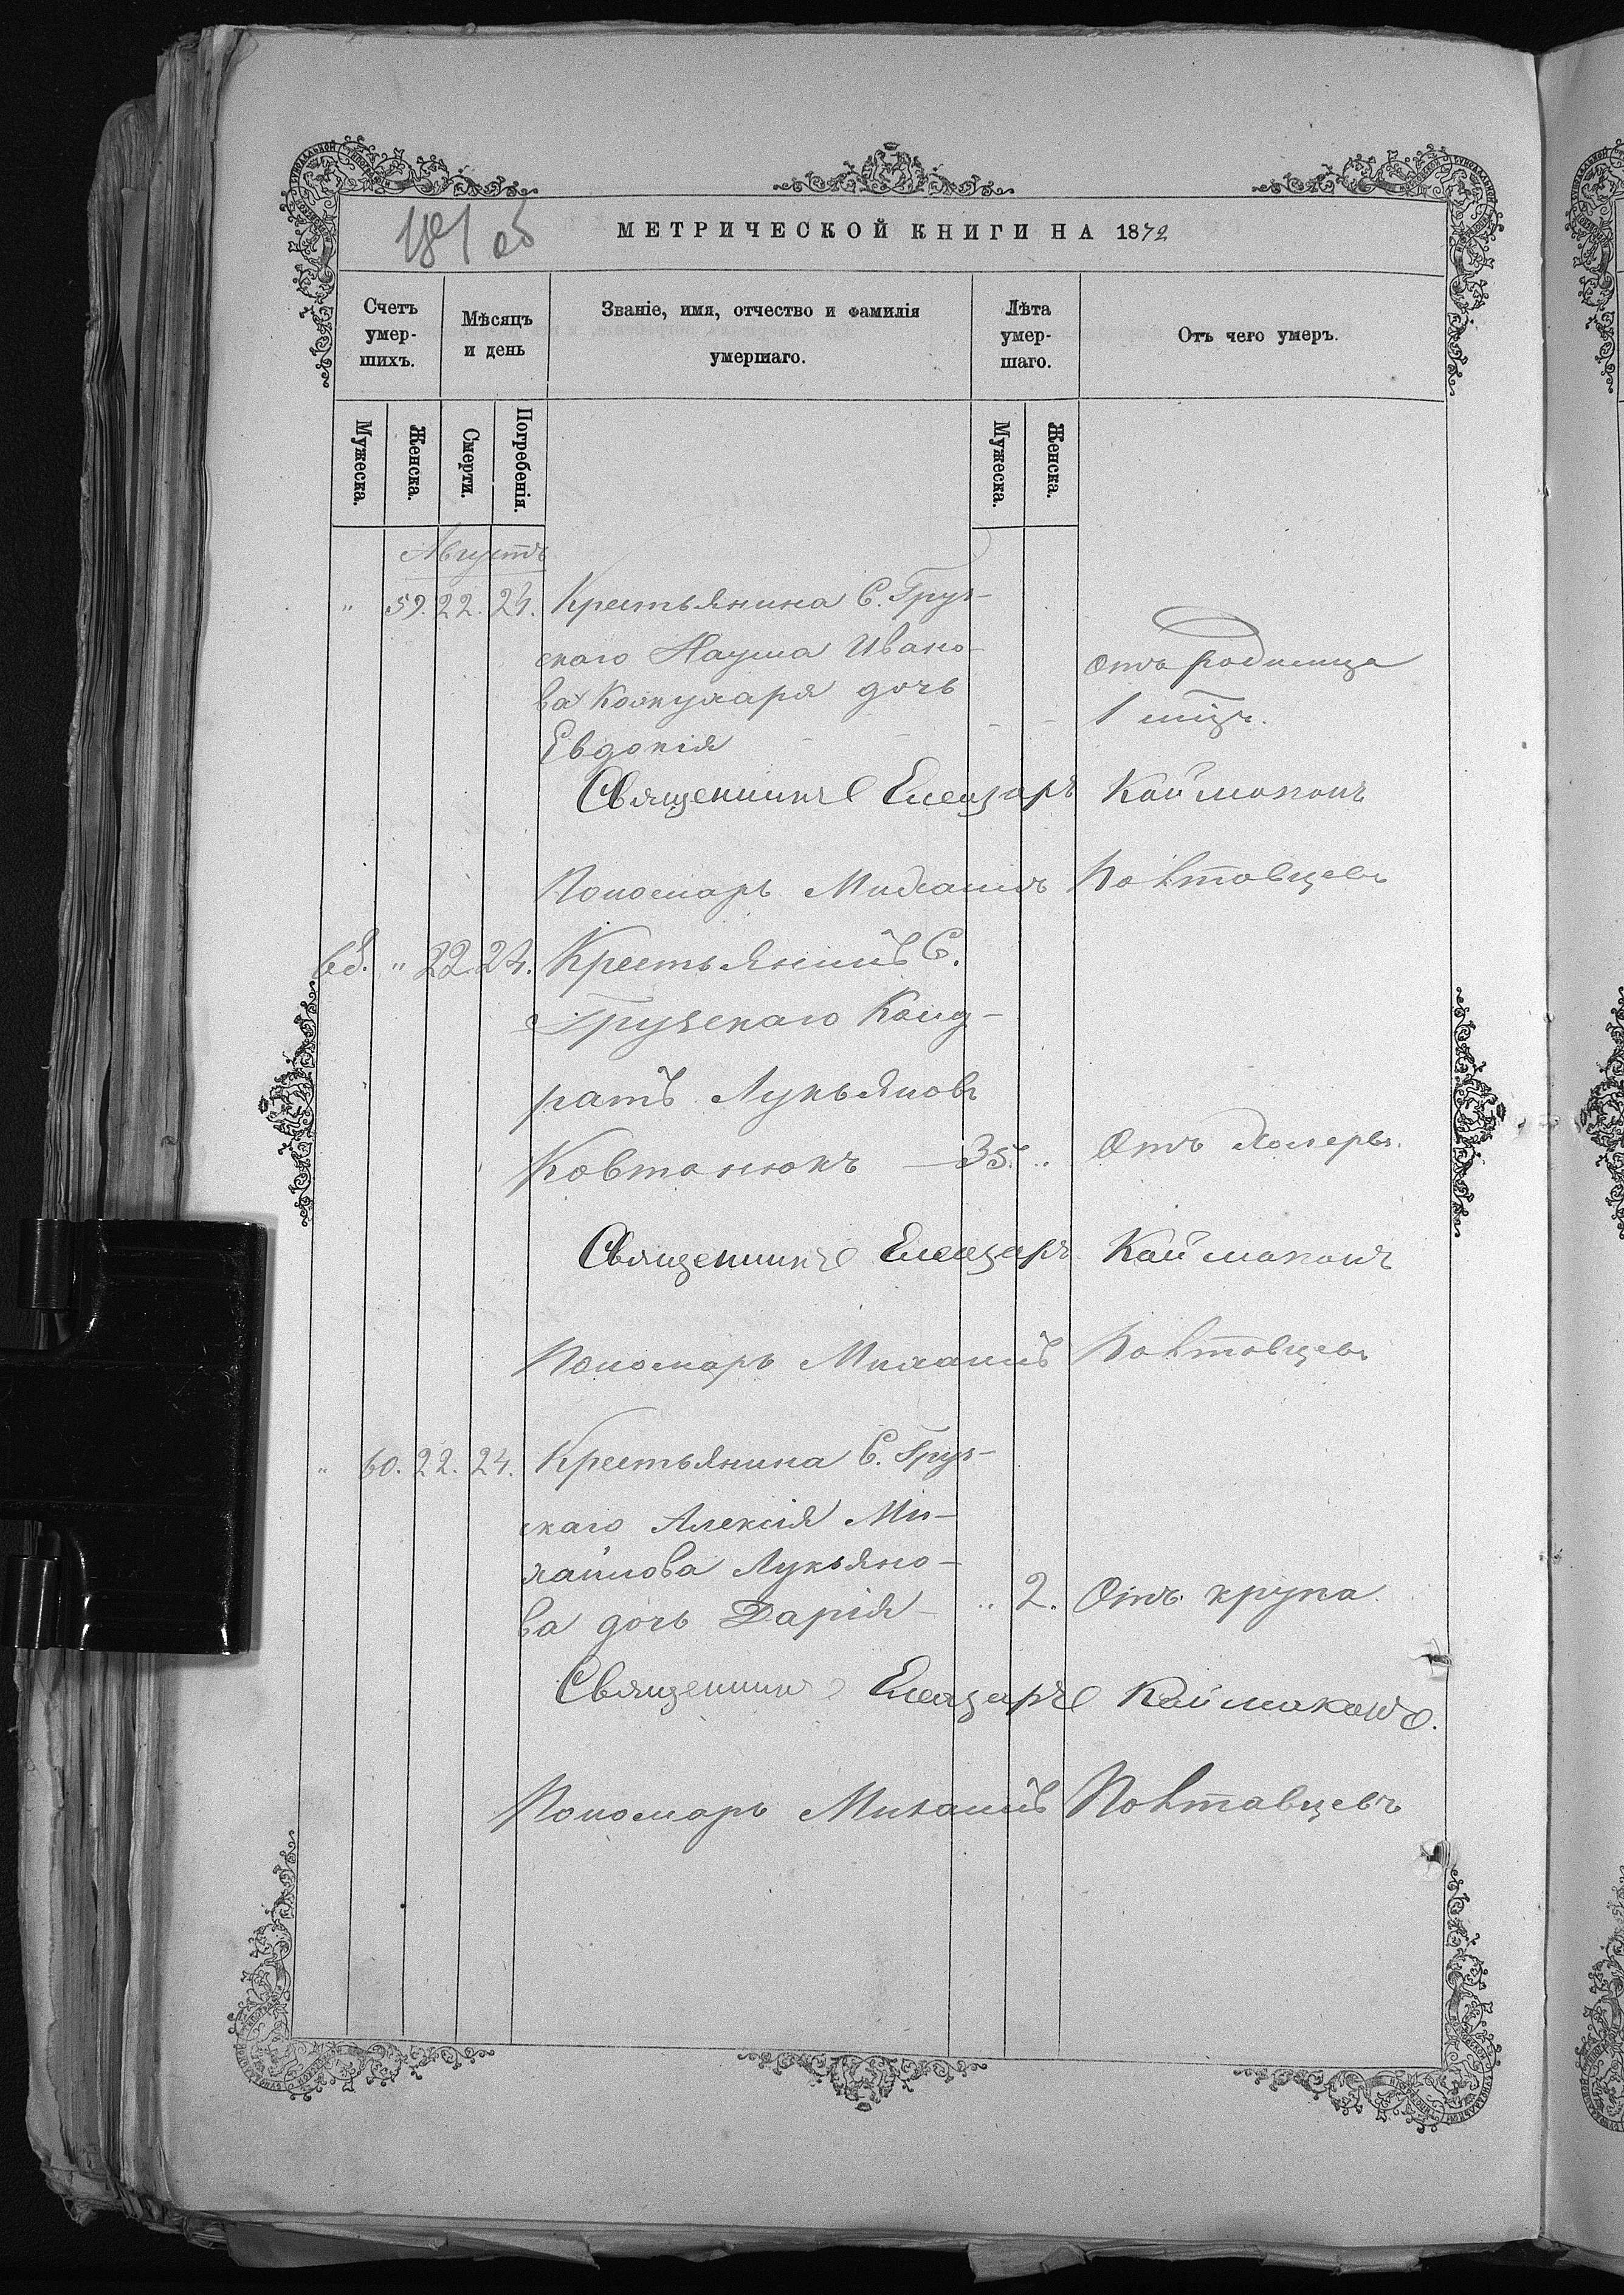 181 об
МЕТРИЧЕСКОЙ КНИГИ НА 1872
Счетъ умер-шихъ.
Мѣсяцъ и день
Званіе, имя, отчество и фамилія умершаго.
Лѣта умер-шаго.
Отъ чего умеръ.
Мужеска. Женска. Смерти. Погребенія. Мужеска. Женска.
Августъ
" 59. 22. 24. Крестьянина С. Груз-
скаго Наума Ивано- отъ родимца
ва дочь 1 мцъ.
Евдокія
Священникъ Елеазаръ Каймаканъ
Пономарь Михаилъ Полтавцевъ
63. " 22. 24. Крестьянинъ С.
Грузскаго Конд-
ратъ Лукьяновъ
Ковтонюкъ — 35. " Отъ холеры.
Священникъ Елеазаръ Каймаканъ
Пономарь Михаилъ Полтавцевъ
" 60. 22. 24. Крестьянина С. Груз-
скаго Алексія Ми-
хайлова Лукьяно-
ва дочь Дарія — " 2. Отъ крупа.
Священникъ Елеазаръ Каймаканъ.
Пономарь Михаилъ Полтавцевъ